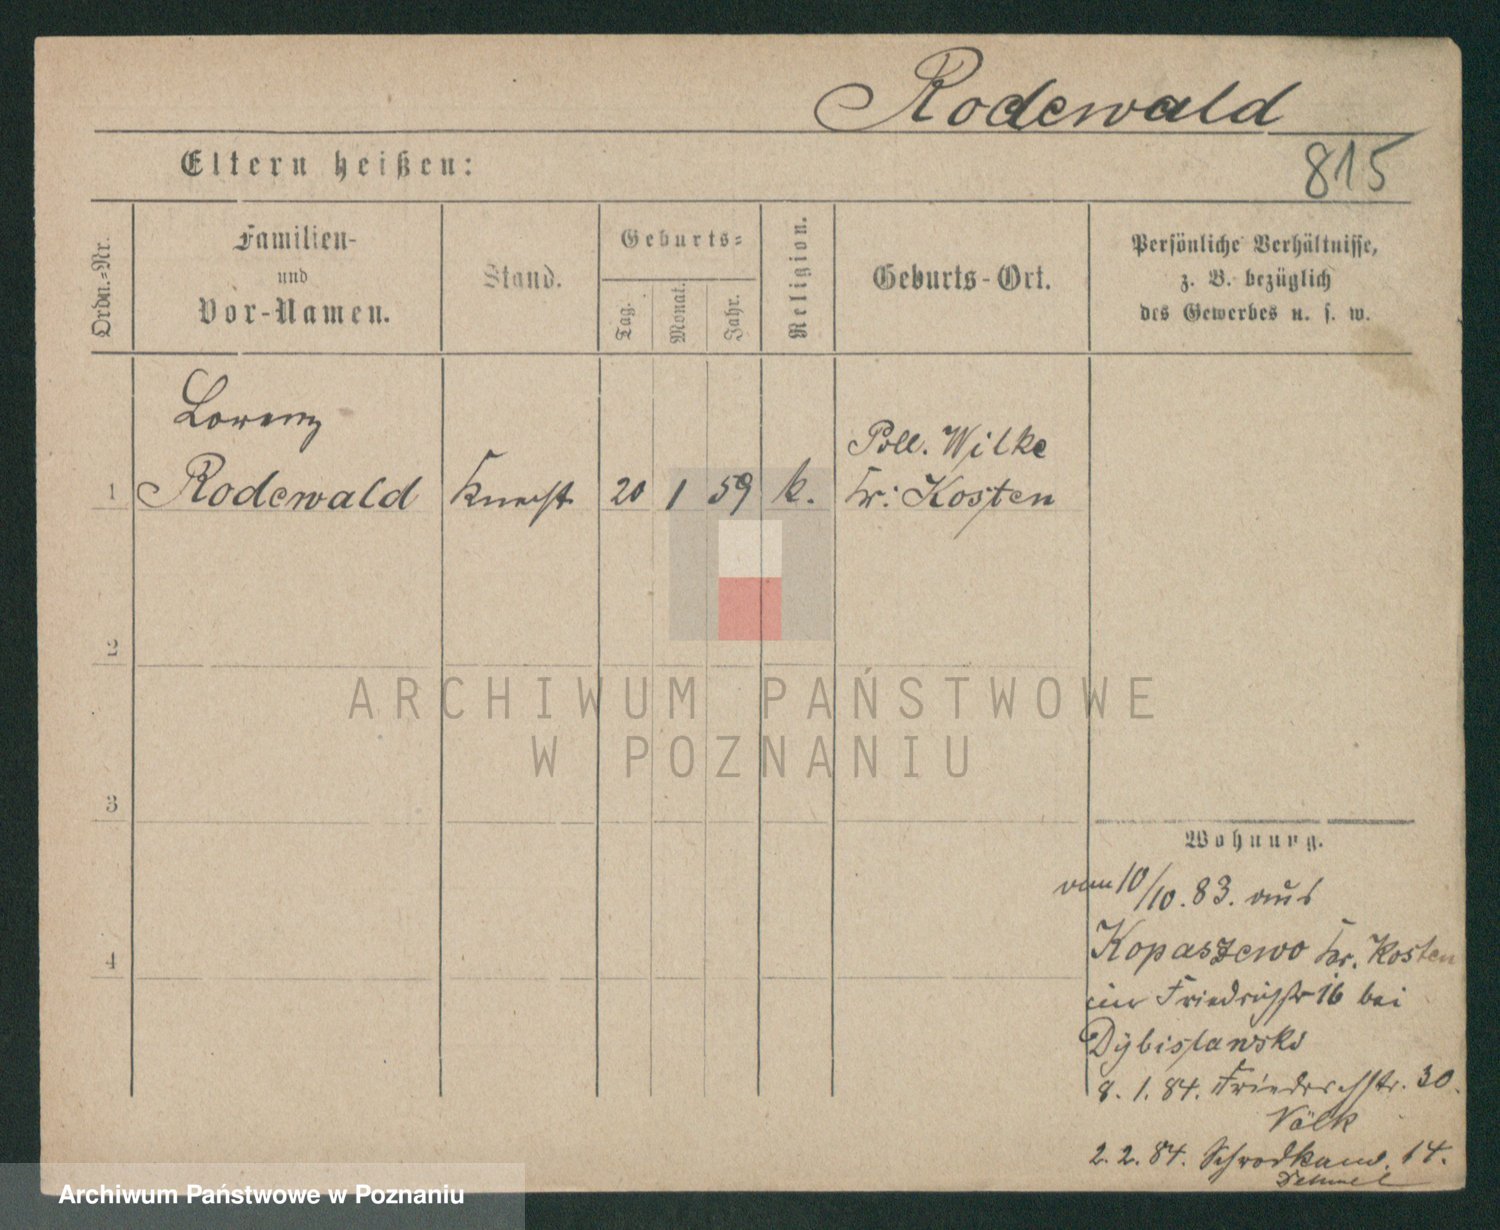 Rodewald
815
Eltern heißen:
Ordn.-Nr.
Familien-
und
Vor-Namen.
Stand.
Geburts-
Tag.
Monat.
Jahr.
Religion.
Geburts-Ort.
Persönliche Verhältnisse,
z. B. bezüglich
des Gewerbes u. s. w.
Lorenz
1 Rodewald Knecht 20 1 59 k. Poll. Wilke
Kr: Kosten
2
3
4
Wohnung.
vom 10/10. 83. aus
Kopaszewo Kr. Kosten
in Friedrichstr 16 bei
8. 1. 84. Friedrichstr. 30.
Völk
2. 2. 84. 14.
ARCHIWUM PAŃSTWOWE
W POZNANIU
Archiwum Państwowe w Poznaniu